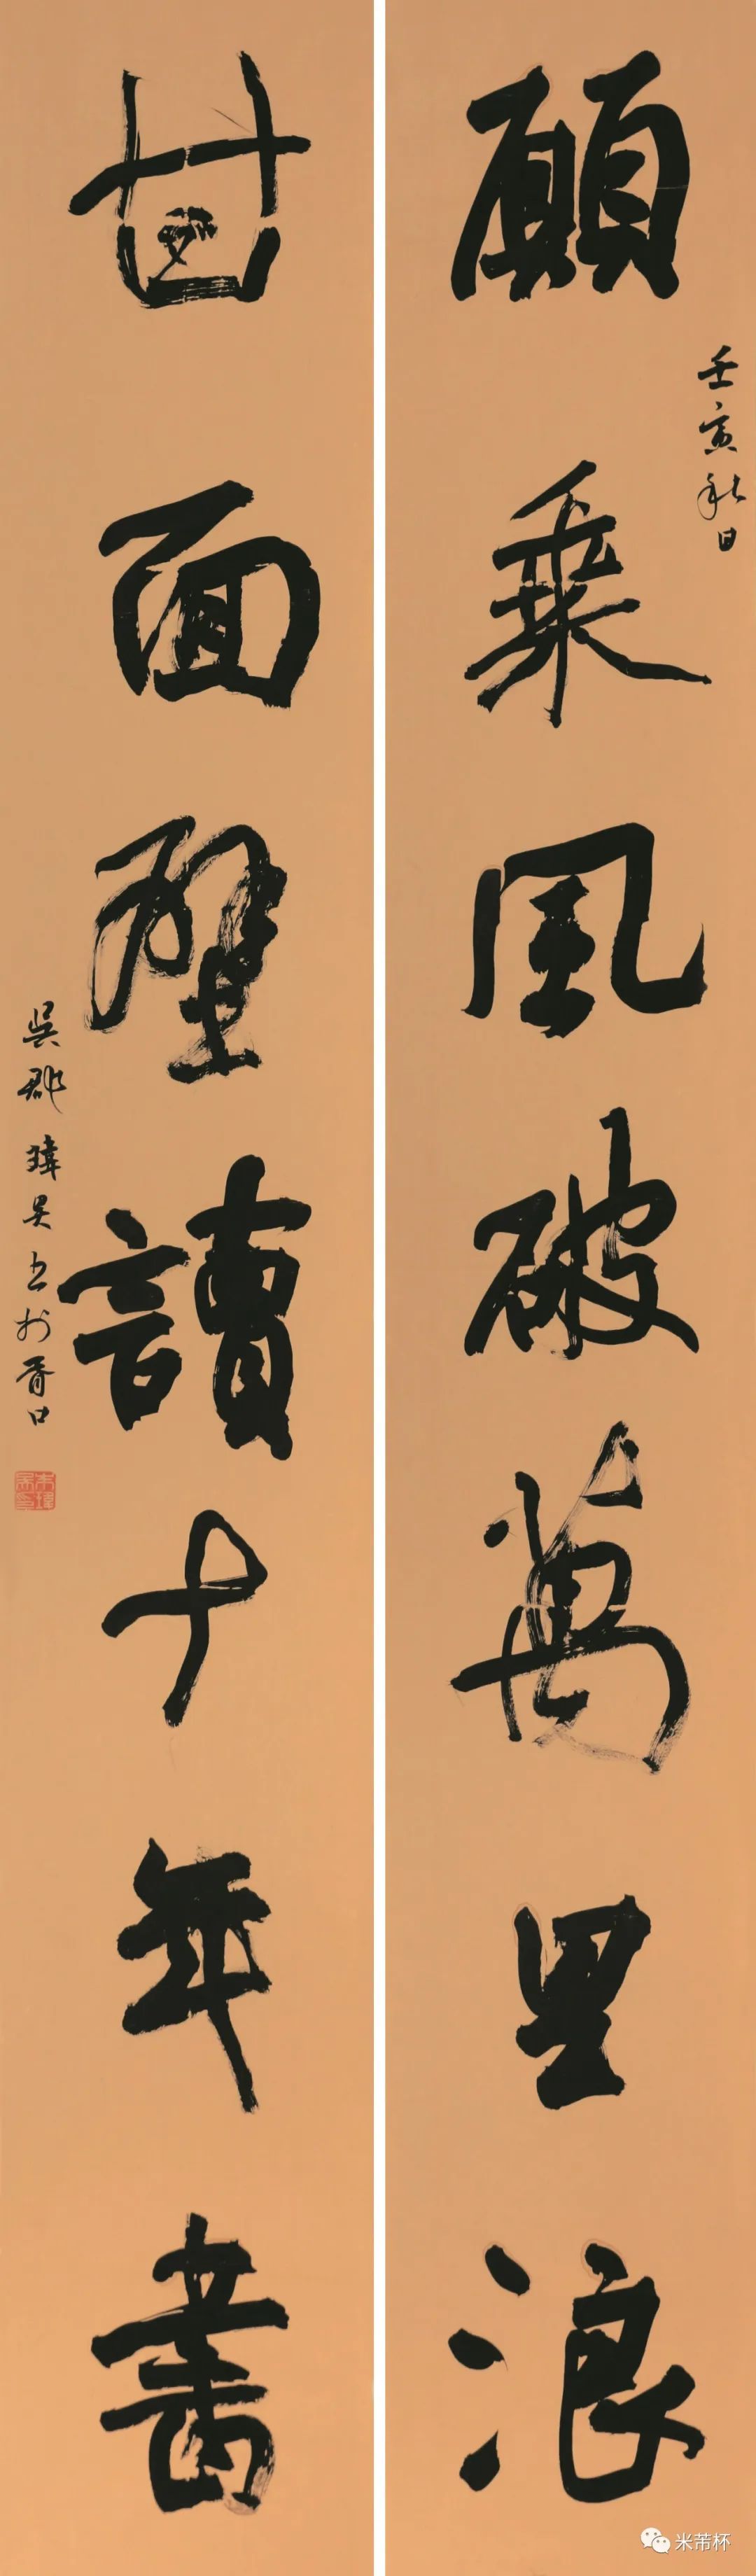 願乘風破萬里浪
壬寅秋日
甘面壁讀十年書
吳郡瑋吴書於胥口
米芾杯